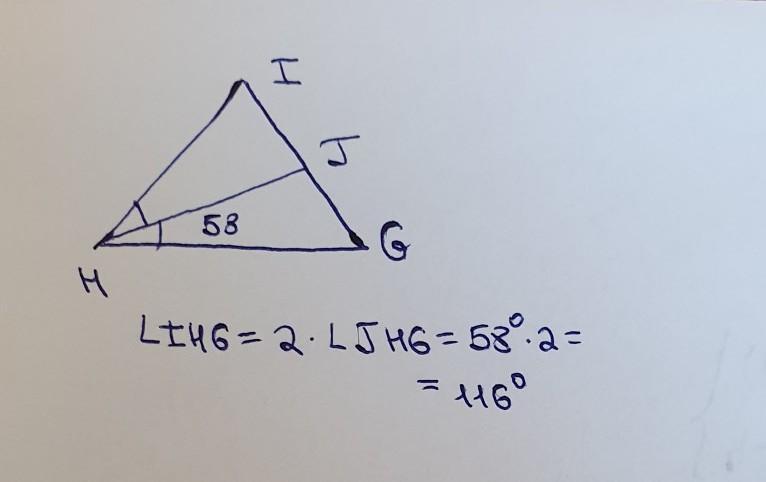 I
J
58
G
H
∠IHG = 2 · ∠JHG = 58° · 2 =
= 116°